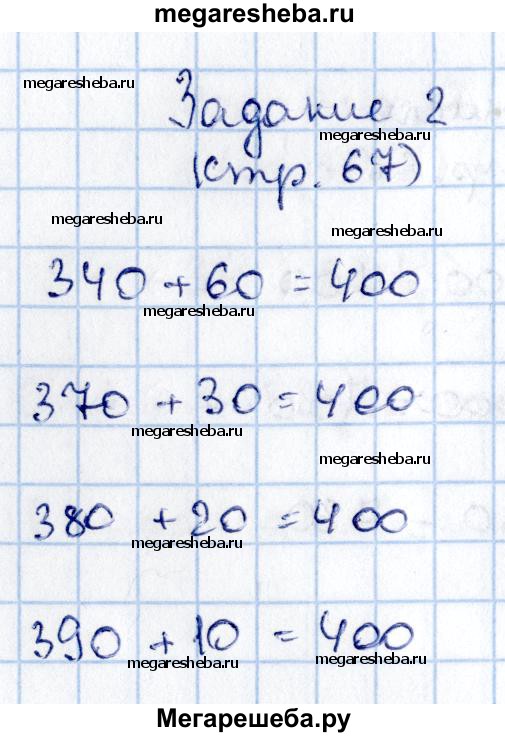 megaresheba.ru
megaresheba.ru
Задание 2
megaresheba.ru
(стр. 67)
megaresheba.ru
340 + 60 = 400
megaresheba.ru
370 + 30 = 400
megaresheba.ru
megaresheba.ru
380 + 20 = 400
megaresheba.ru
390 + 10 = 400
megaresheba.ru
megaresheba.ru
Мегарешеба.ру